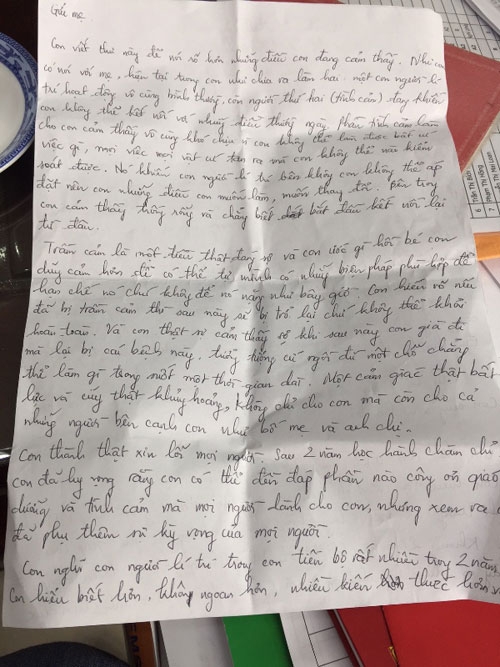 Gửi mẹ
Con viết thư này để nói rõ hơn những điều con đang cảm thấy. Như con
có nói với mẹ, hiện tại trong con như chia ra làm hai: một con người lí
trí hoạt động vô cùng bình thường, con người thứ hai (tình cảm) đang khiến
con không thể kết nối với những điều thường ngày. Phần tình cảm làm
cho con cảm thấy vô cùng khó chịu vì con không thể làm được bất cứ
việc gì, mọi việc mọi vật cứ diễn ra mà con không thể nào kiểm
soát được. Nó khiến con người lí trí bên không con không thể áp
đặt nên con những điều con muốn làm, muốn thay đổi. Bên trong
con cảm thấy trống rỗng và chẳng biết bắt đầu kết nối lại
từ đâu.
Trầm cảm là một điều thật đáng sợ và con ước gì hồi bé con
dũng cảm hơn để có thể tự mình có những biện pháp phù hợp để
hạn chế nó chứ không để nó nặng như bây giờ. Con hiểu rõ nếu
đã bị trầm cảm thì sau này sẽ bị trở lại chứ không thể khỏi
hoàn toàn. Và con thật sự cảm thấy sợ khi sau này con già đi
mà lại bị cái bệnh này, tưởng tượng cứ ngồi đừ một chỗ chẳng
thể làm gì trong suốt một thời gian dài. Một cảm giác thật bất
lực và cũng thật khủng hoảng, không chỉ cho con mà còn cho cả
những người bên cạnh con như bố mẹ và anh chị.
Con thành thật xin lỗi mọi người. Sau 2 năm học hành chăm chỉ
con đã hy vọng rằng con có thể đền đáp phần nào công ơn giáo
dưỡng và tình cảm mà mọi người dành cho con, nhưng xem ra con
đã phụ thêm sự kỳ vọng của mọi người.
Con nghĩ con người lí trí trong con tiến bộ rất nhiều trong 2 năm
Con hiểu biết hơn, khôn ngoan hơn, nhiều kiến thức hơn và